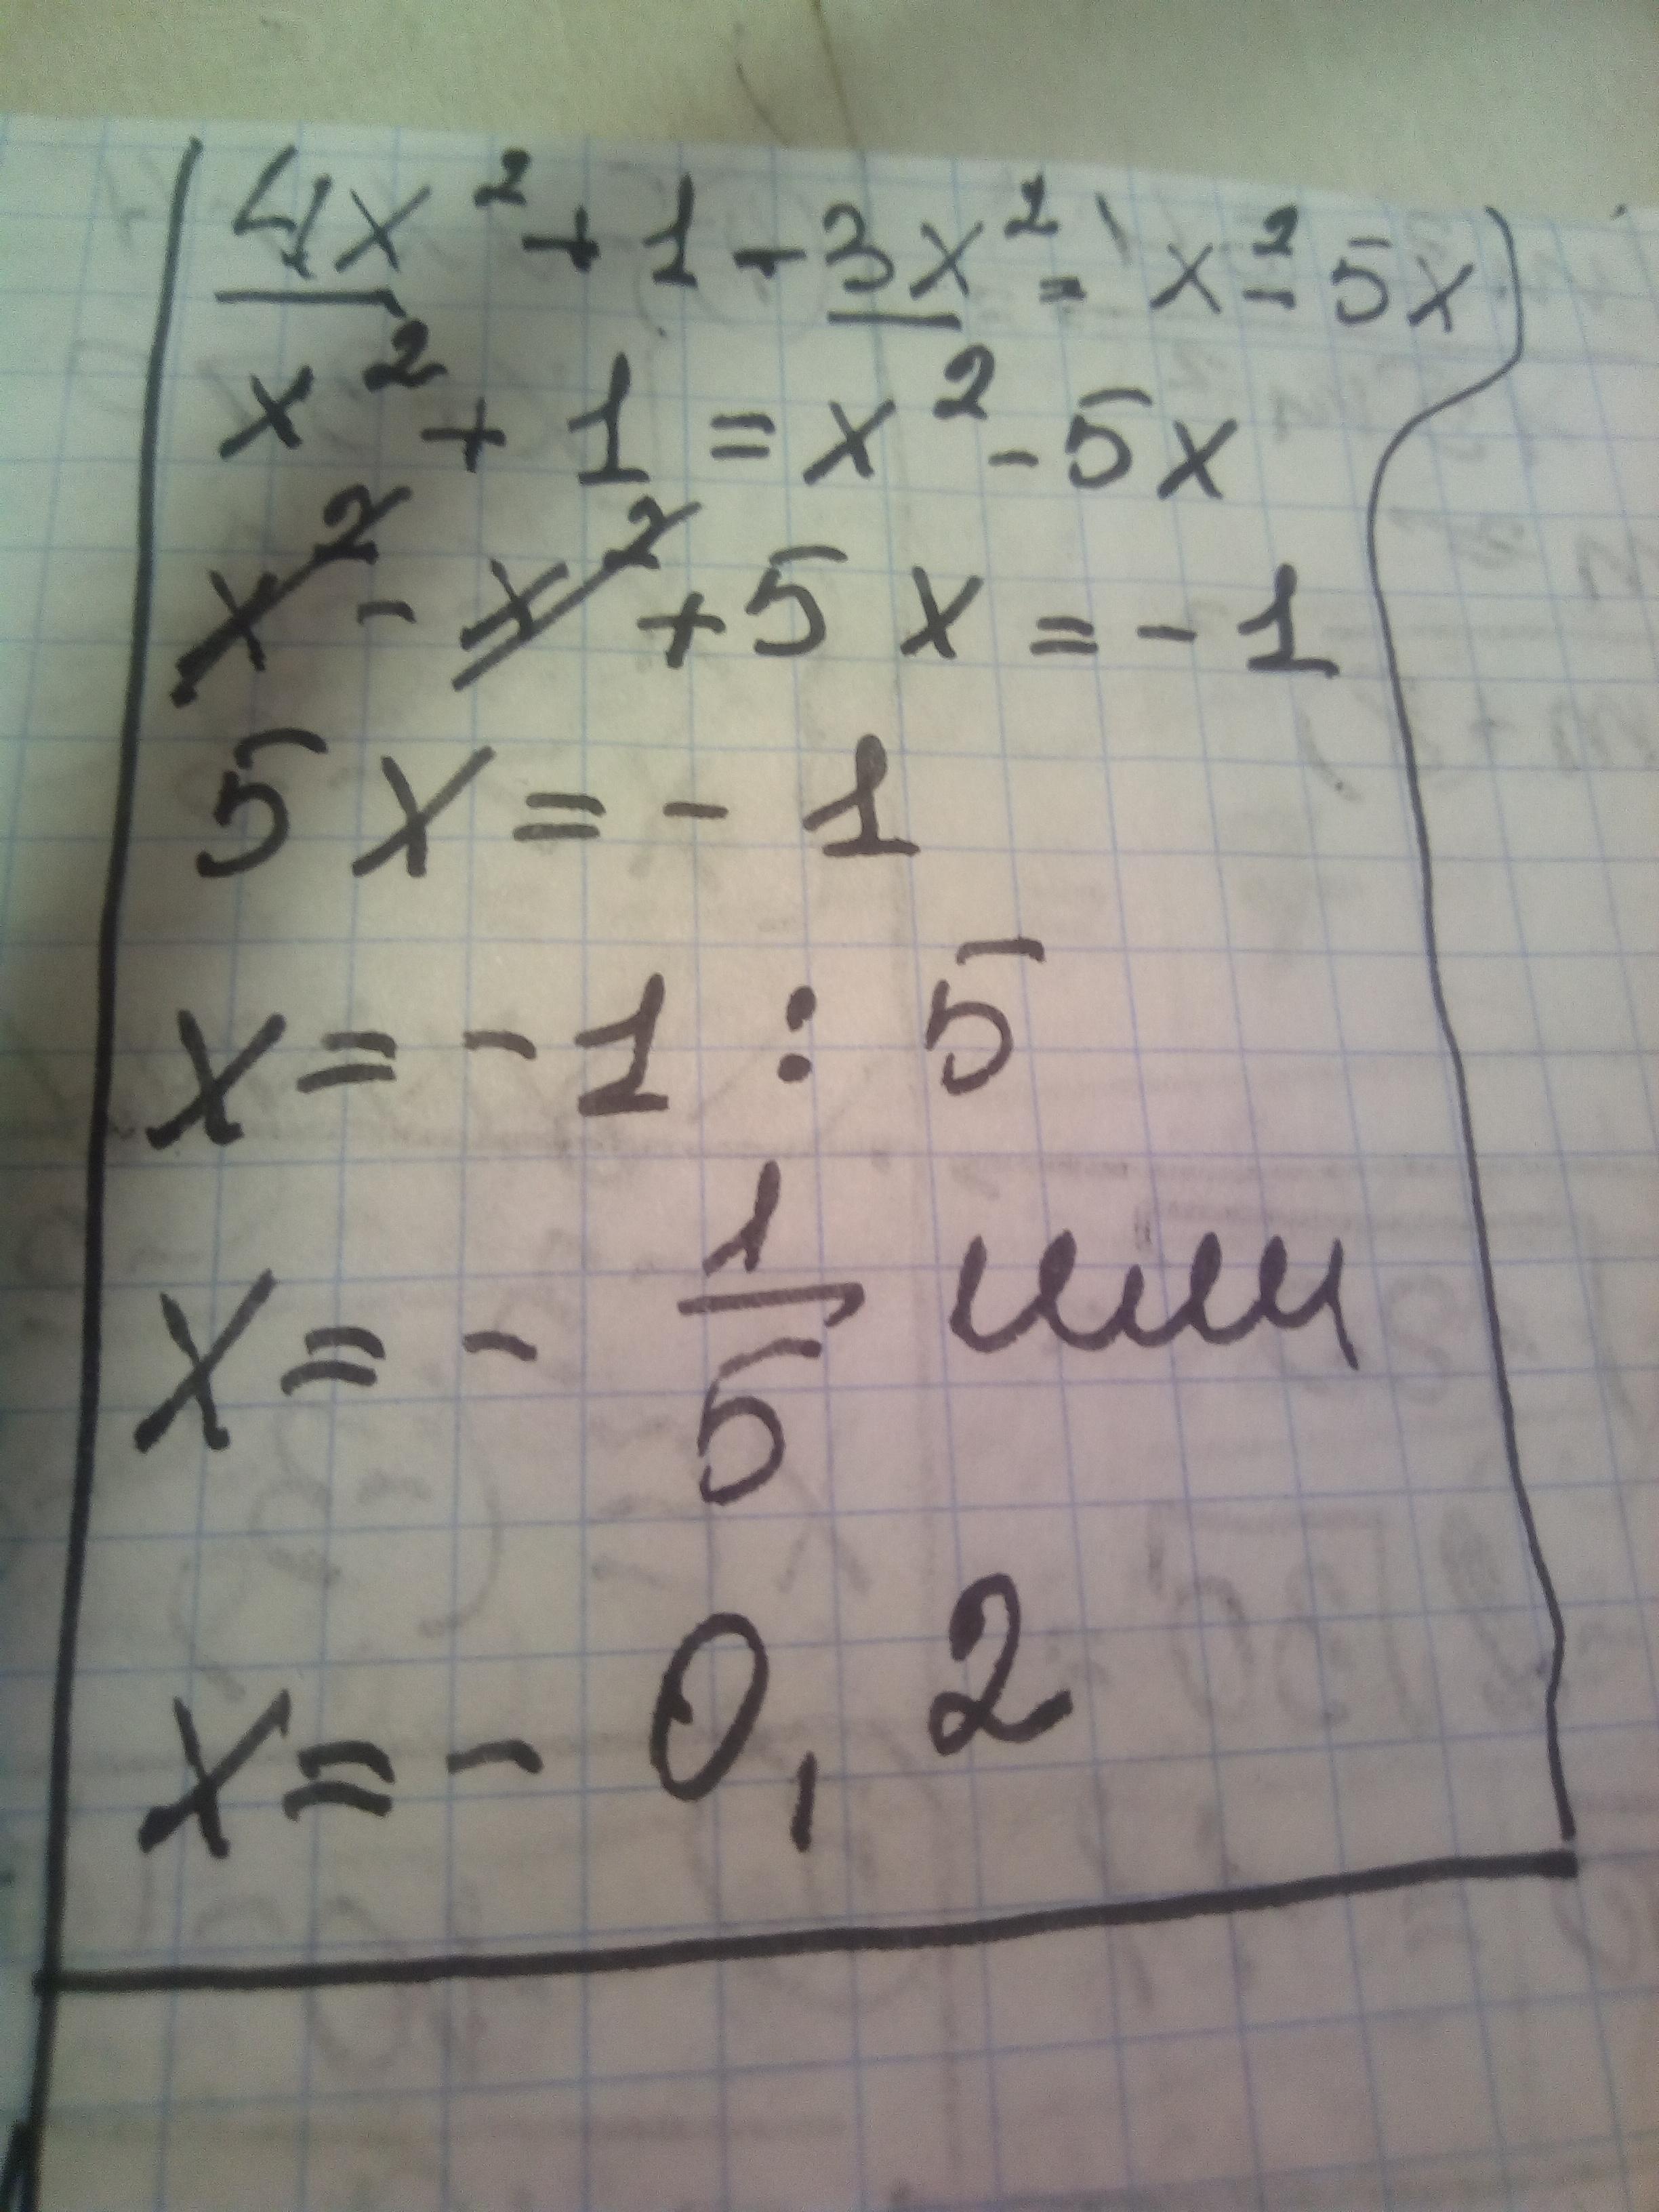 4x² + 1 - 3x² = x² - 5x
x² + 1 = x² - 5x
x² - x² + 5x = - 1
5x = - 1
x = - 1 : 5
x = - 1/5 или
x = - 0,2